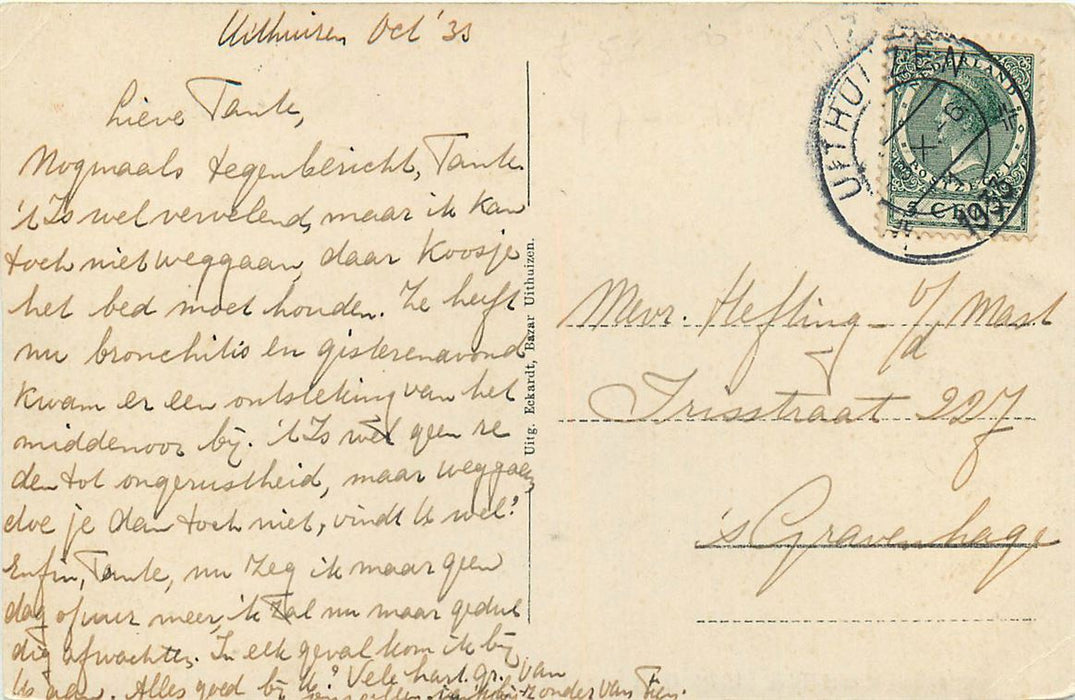 Uithuizen Oct '33
Lieve Tante,
Nogmaals tegenbericht, Tante
't Is wel vervelend, maar ik kan
toch niet weggaan, daar Koosje
het bed moet houden. Ze heeft
nu bronchitis en gisterenavond
kwam er een ontsteking van het
middenoor bij. 't Is wel geen re
den tot ongerustheid, maar weggaan
doe je dan toch niet, vindt U wel?
Enfin, Tante, nu zeg ik maar geen
dag of uur meer, ik zal nu maar gedul
dig afwachten. In elk geval kom ik bij
U aan. Alles goed bij U? Vele hart. gr. van
ons allen bijzonder van
Uitg. Eckardt, Bazar Uithuizen.
UITHUIZEN
1933
NEDERLAND
POSTZEGEL
5 CENT
Mevr. Hefting - v/d Mast
Irisstraat 227
's Gravenhage